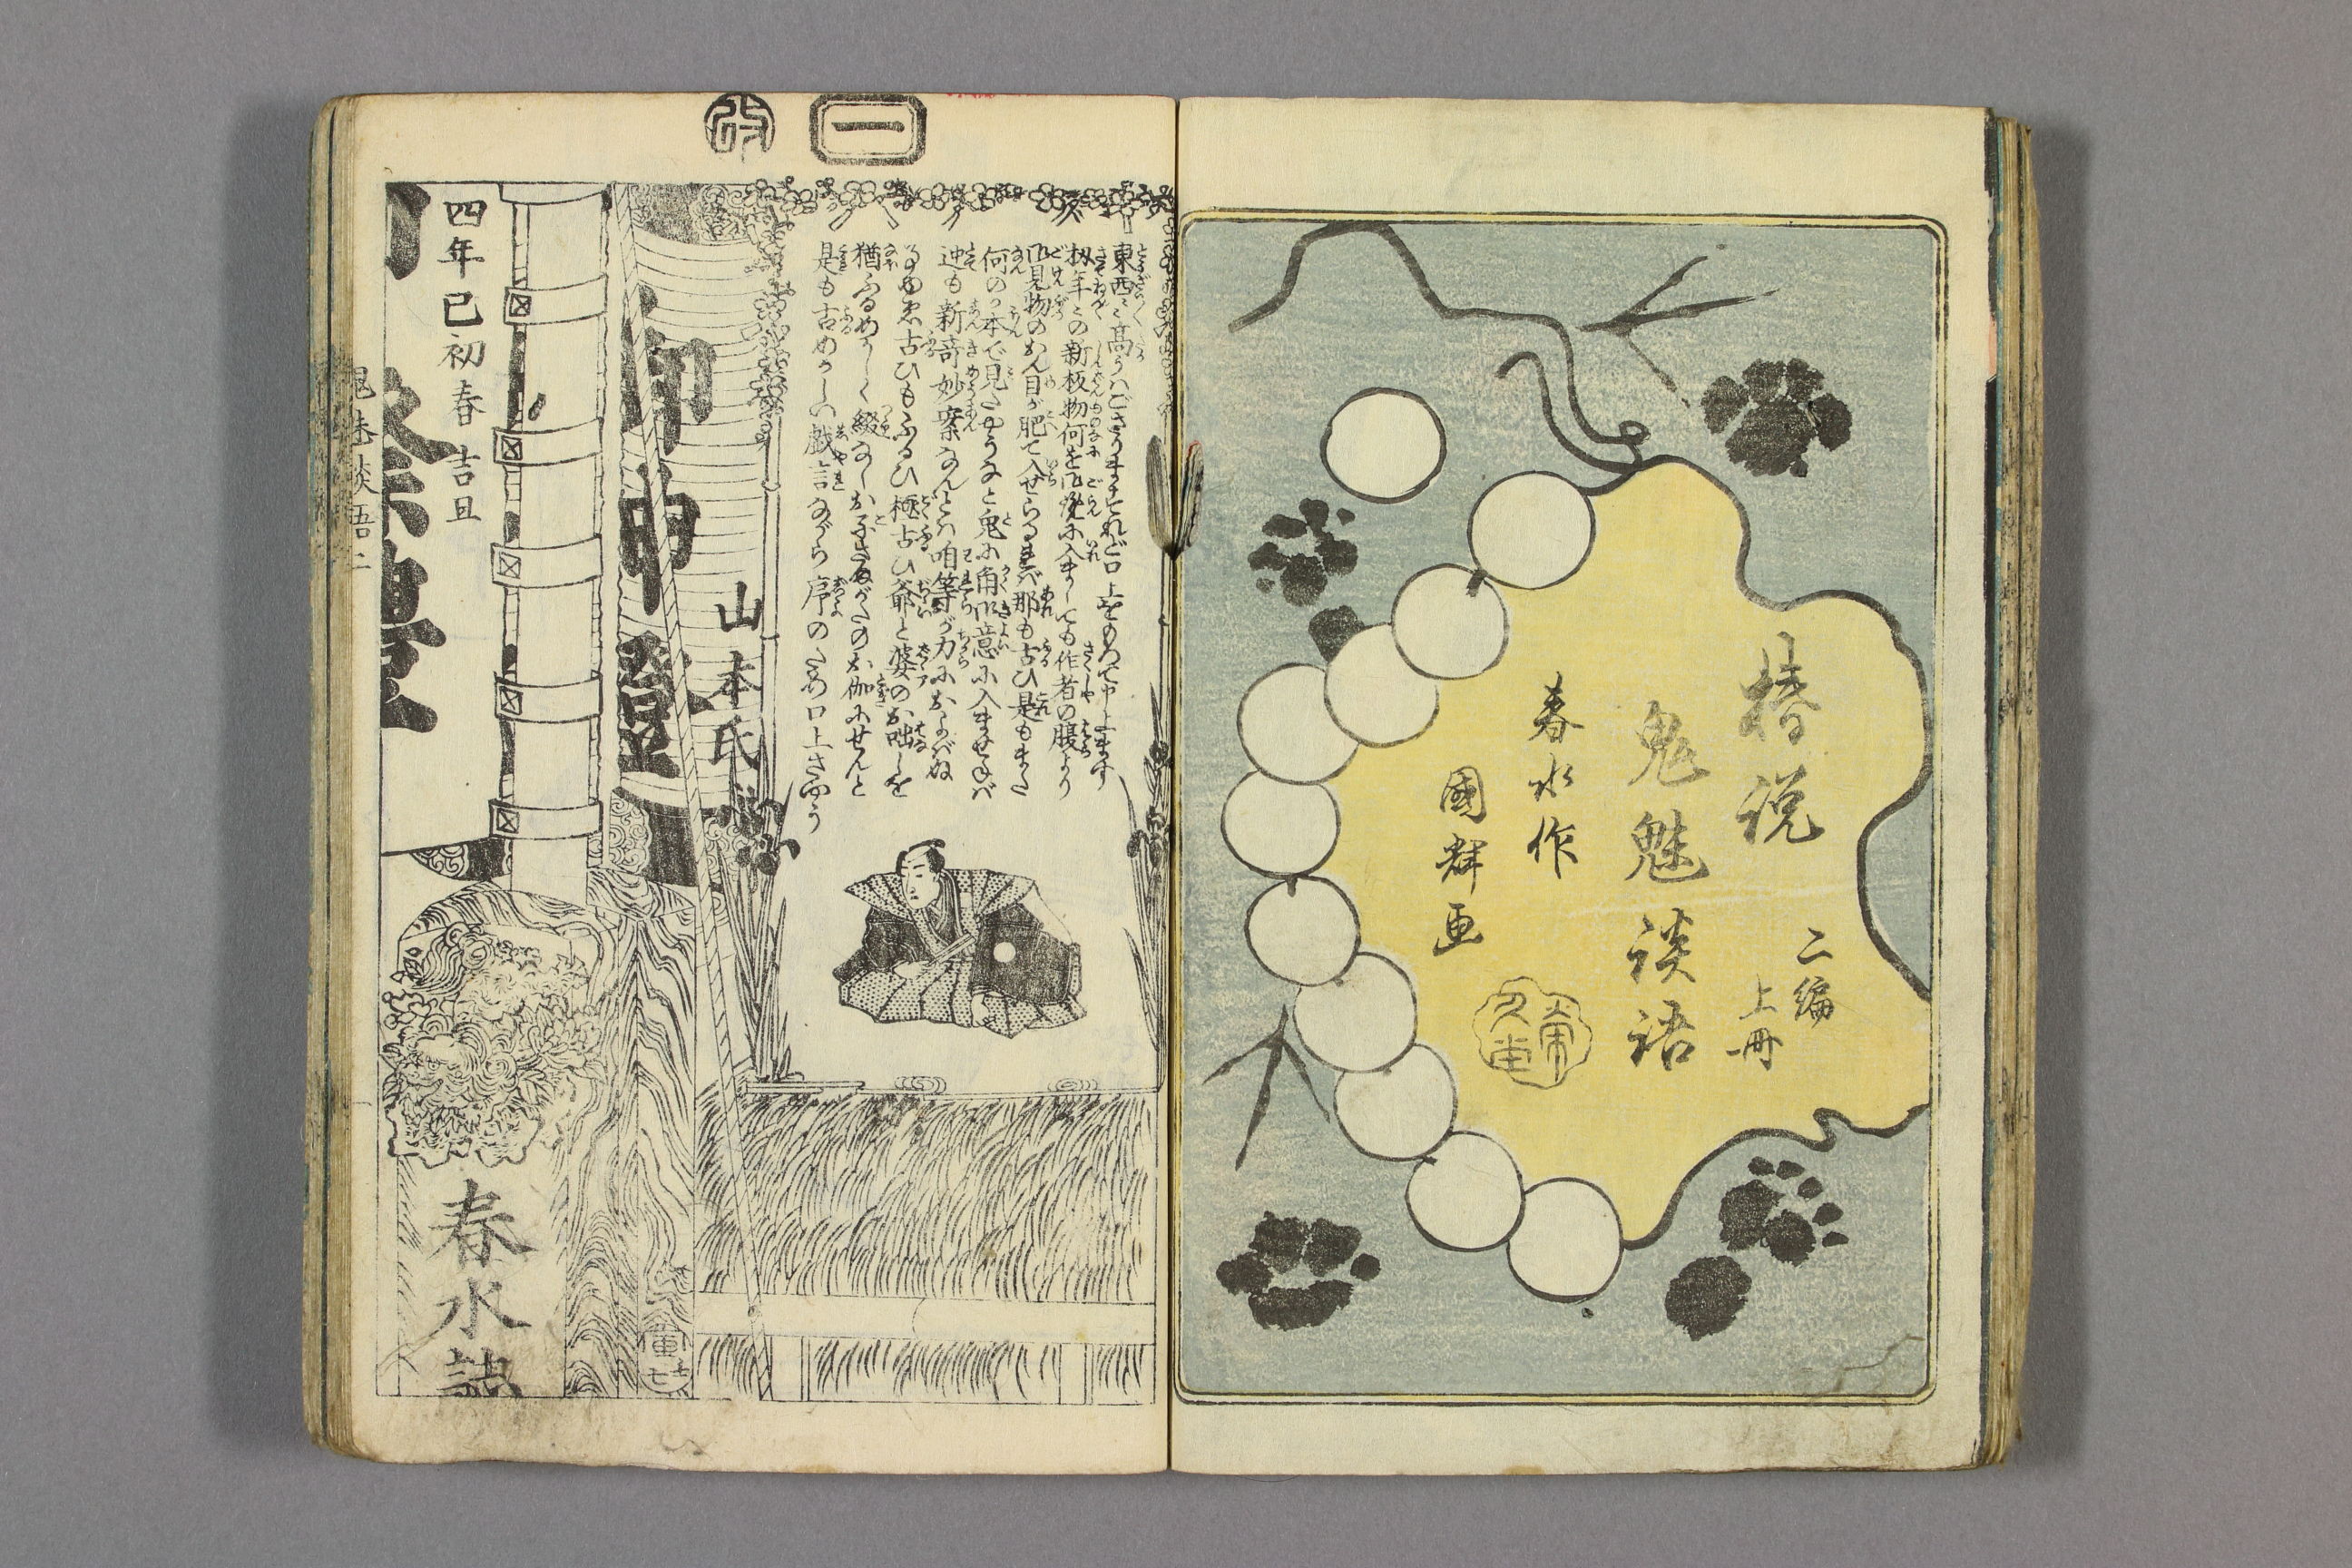 椿説
鬼魅談語
二編
上冊
春水作
國輝画
文会堂
改
一
東西〻高うハござりますれど口上をもつて申上ます
扨年〻の新板物何を御覧に入ましても作者の腹より
御見物のお目が肥て入せらるれば那も古ひ是もまた
何のか本で見たやうなと鬼に角御意に入ませねバ
迚も新奇妙案なんどハ咱等が力におよバぬ
古ひもふるひ極古ひ爺と婆のお咄しを
猶ふるめかしく綴なしお子さまがたのお伽にせんと
是も古めかしい戯言ながら序のため口上さやう
山本氏
御神燈
四年巳初春吉旦
春水誌
鬼魅談語二